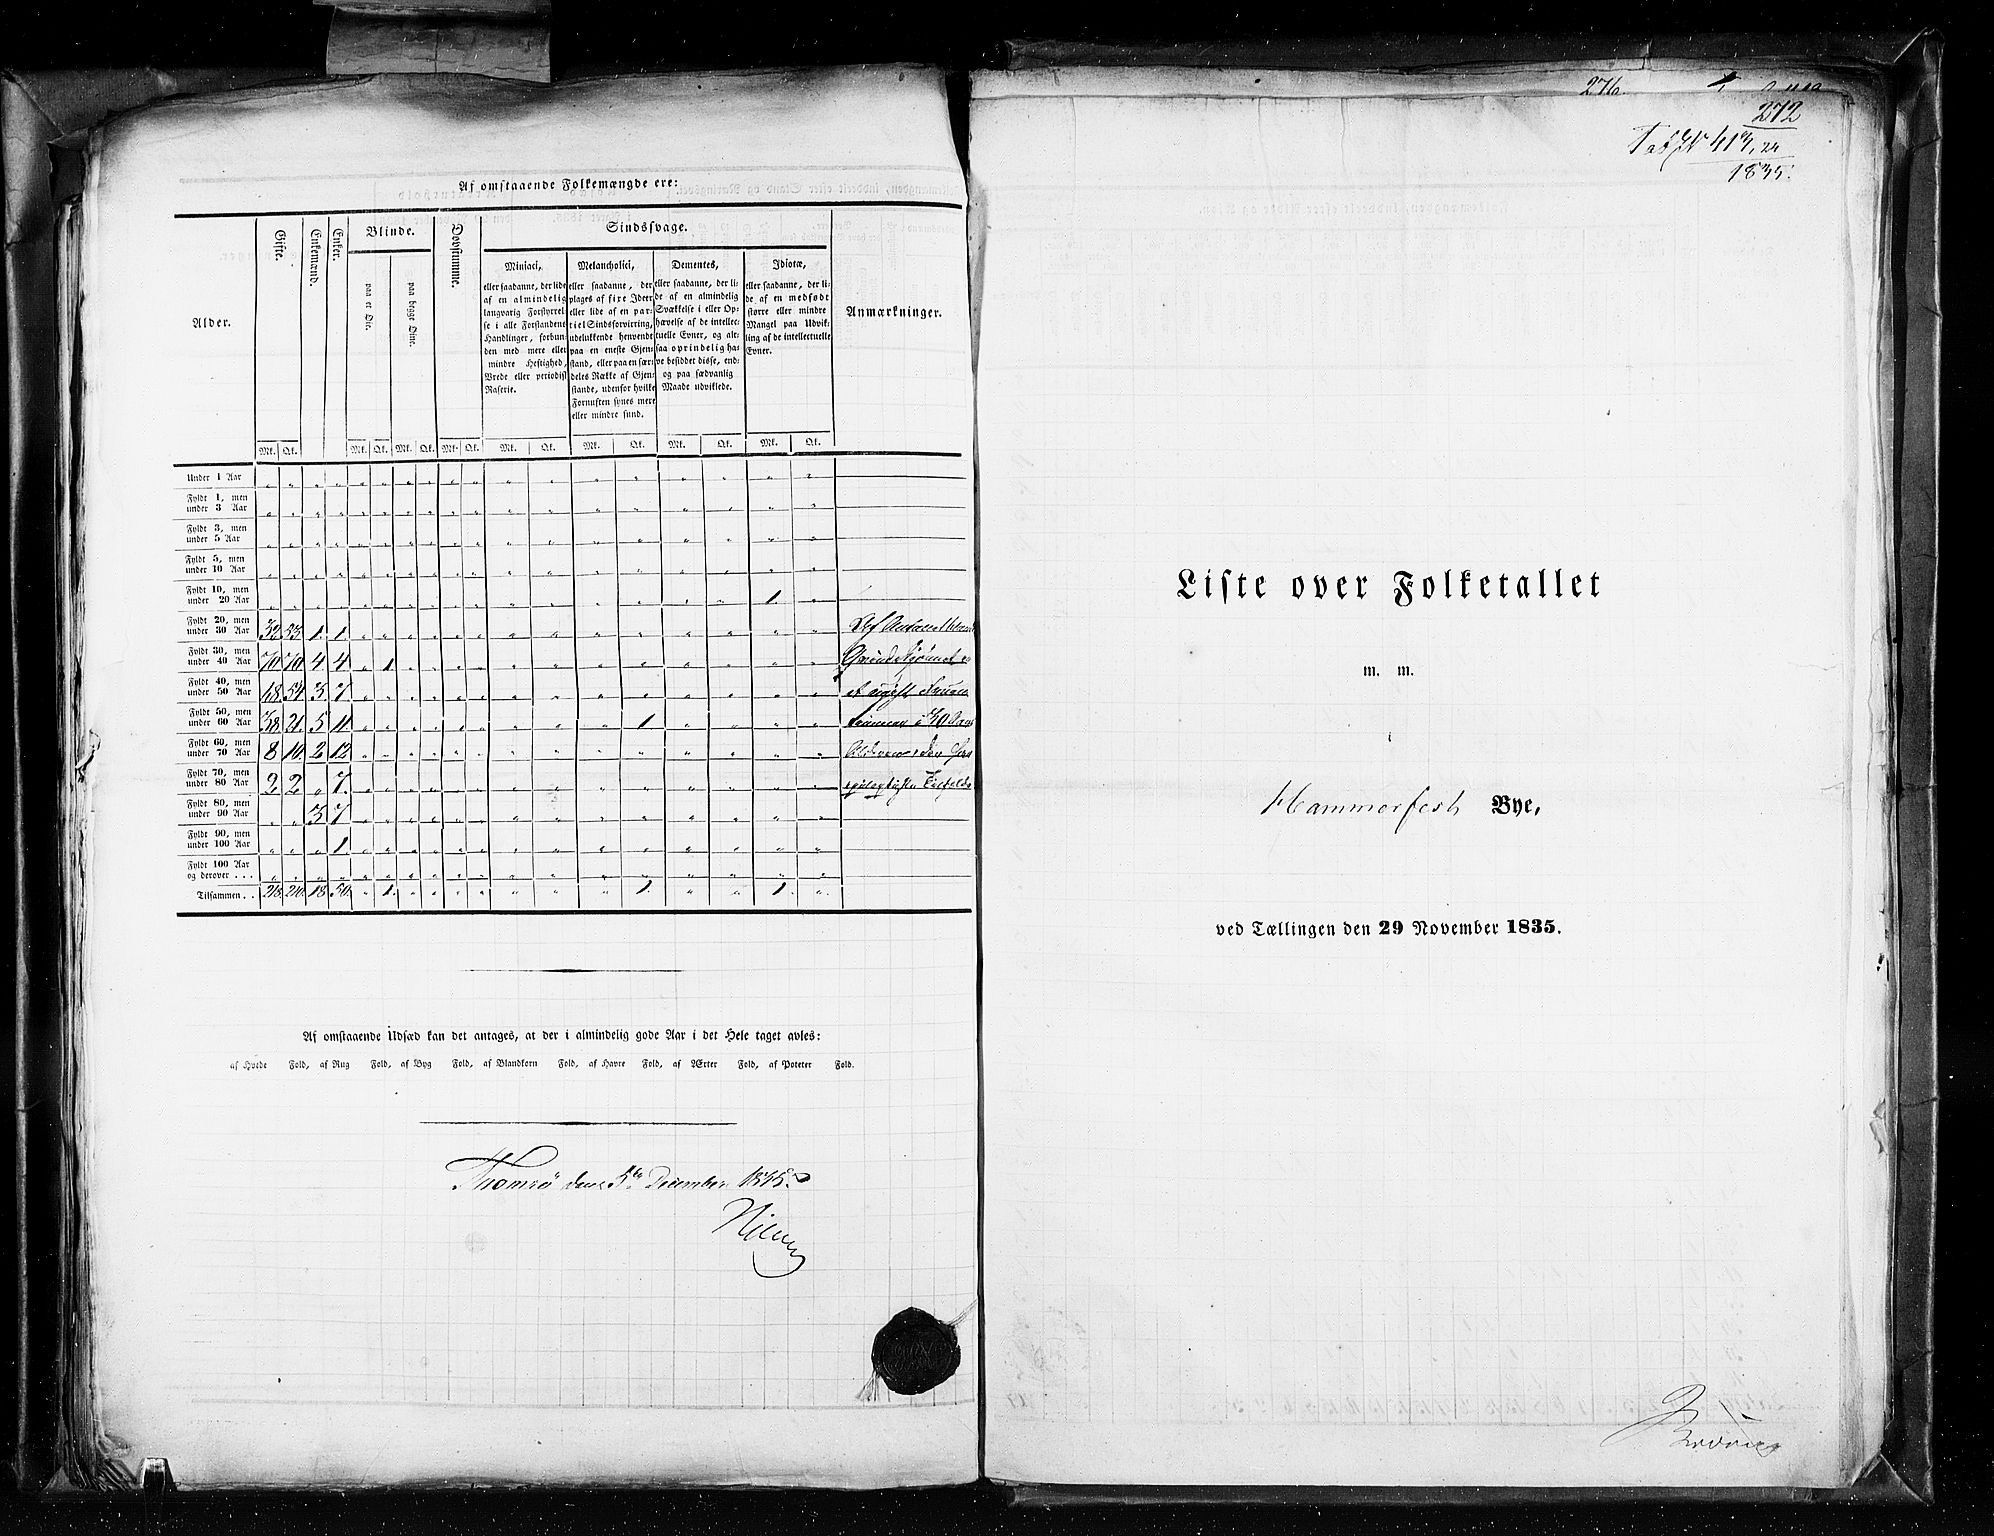 Af omstaaende Folkemængde ere:
Alder. Gifte. Enkemænd. Enker. Blinde. Døvstumme. Sindssvage. Anmærkninger.
paa et Øie. paa begge Øine.
Miniaci,
eller saadanne, der lide
af en almindelig
langvarig Forstyrrel-
se i alle Forstandens
Handlinger, forbun-
den med mere eller
mindre Heftighed,
Vrede eller periodisk
Raserie.
Melancholici,
eller saadanne, der
plages af fixe Ideer
eller lide af en par-
tiel Sindsforvirring,
udelukkende henvendt
paa en eneste Gjen-
stand, eller paa en sær-
deles Række af Gjen-
stande, udenfor hvilke
Fornuften synes mere
eller mindre sund.
Dementes,
eller saadanne, der li-
de af en almindelig
Svækkelse i eller Op-
hævelse af de intellec-
tuelle Evner, og alt-
saa oprindelig ha-
ve besiddet disse, end-
og paa sædvanlig
Maade udviklede.
Idiotæ,
eller saadanne, der li-
de af en medfødt
større eller mindre
Mangel paa Udvik-
ling af de intellectuelle
Evner.
Mk. Qk. Mk. Qk. Mk. Qk. Mk. Qk. Mk. Qk. Mk. Qk. Mk. Qk. Mk. Qk.
Under 1 Aar
Fyldt 1, men
under 3 Aar
Fyldt 3, men
under 5 Aar
Fyldt 5, men
under 10 Aar
Fyldt 10, men
under 20 Aar 1.
Fyldt 20, men
under 30 Aar 32. 53. 1. 1.
Fyldt 30, men
under 40 Aar 70. 70. 4 4 1
Fyldt 40, men
under 50 Aar 68. 54. 3. 7.
Fyldt 50, men
under 60 Aar 38. 21. 5 11. 1
Fyldt 60, men
under 70 Aar 8 10. 2 12
Fyldt 70, men
under 80 Aar 2 2 7.
Fyldt 80, men
under 90 Aar 3 7
Fyldt 90, men
under 100 Aar 1.
Fyldt 100 Aar
og derover . . .
Tilsammen . . 218. 210. 18 50. 1. 1. 1.
Af omstaaende Udsæd kan det antages, at der i almindelig gode Aar i det Hele taget avles:
af Hvede Fold, af Rug Fold, af Byg Fold, af Blandkorn Fold, af Havre Fold, af Ærter Fold, af Poteter Fold.
Thromsø den 5te December 1835.
276.
272
Tab N 419, 24
1835.
Liste over Folketallet
m. m.
i
Hammerfest Bye,
ved Tællingen den 29 November 1835.